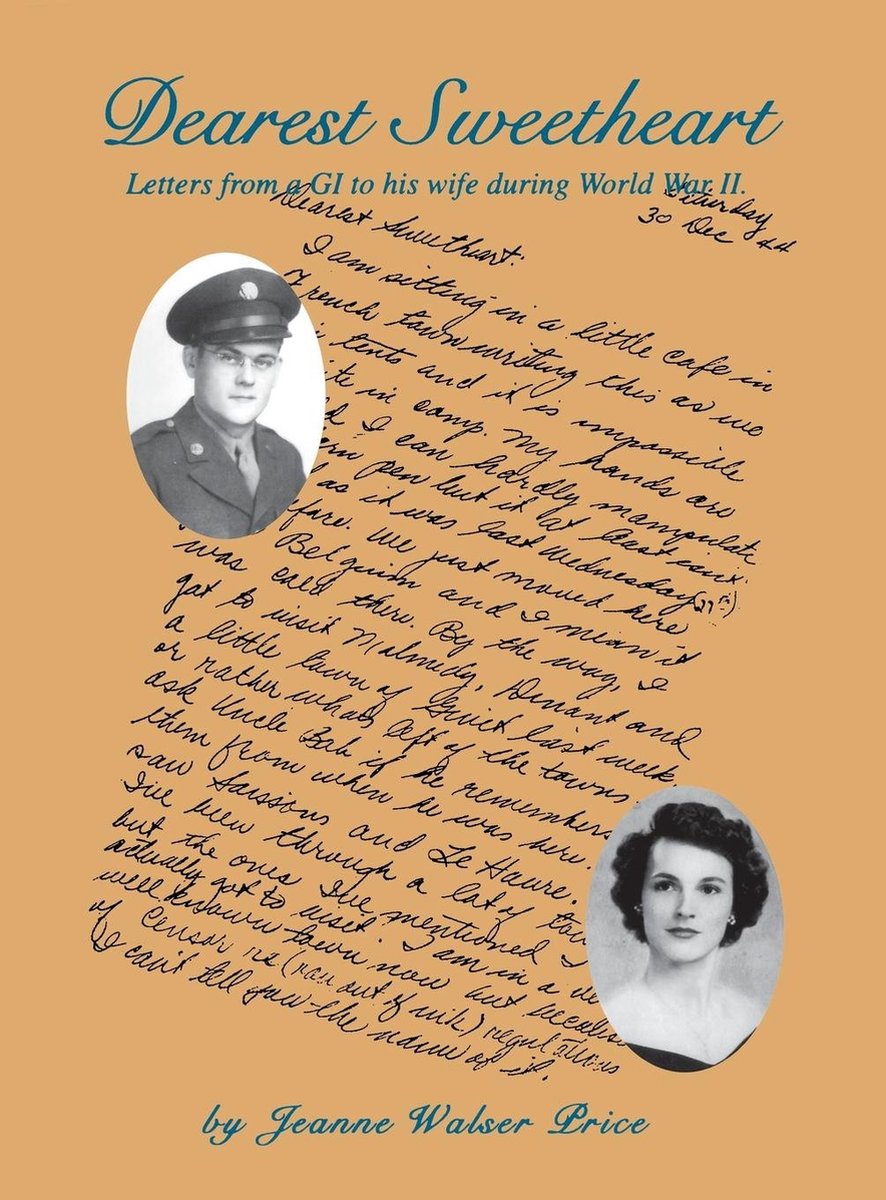 Dearest Sweetheart
Letters from a GI to his wife during World War II.
Saturday
30 Dec 44
Dearest Sweetheart:
I am sitting in a little cafe in
French town writing this as we
tents and it is impossible
in camp. My hands are
I can hardly manipulate
pen but it at least isn't
as it was last Wednesday (27th)
We just moved here
Belguim and I mean it
was cold there. By the way, I
got to visit Malmedy, Dinant and
a little town of Givet last week
or rather whats left of the towns.
ask Uncle Bab if he remembers
them from when he was here.
saw Saissons and Le Havre.
I've been through a lot of
but the ones I've mentioned I
actually got to visit. I am in a
well known town now but because
of Censor rz (ran out of ink) regulations
I can't tell you the name of it.
by Jeanne Walser Price